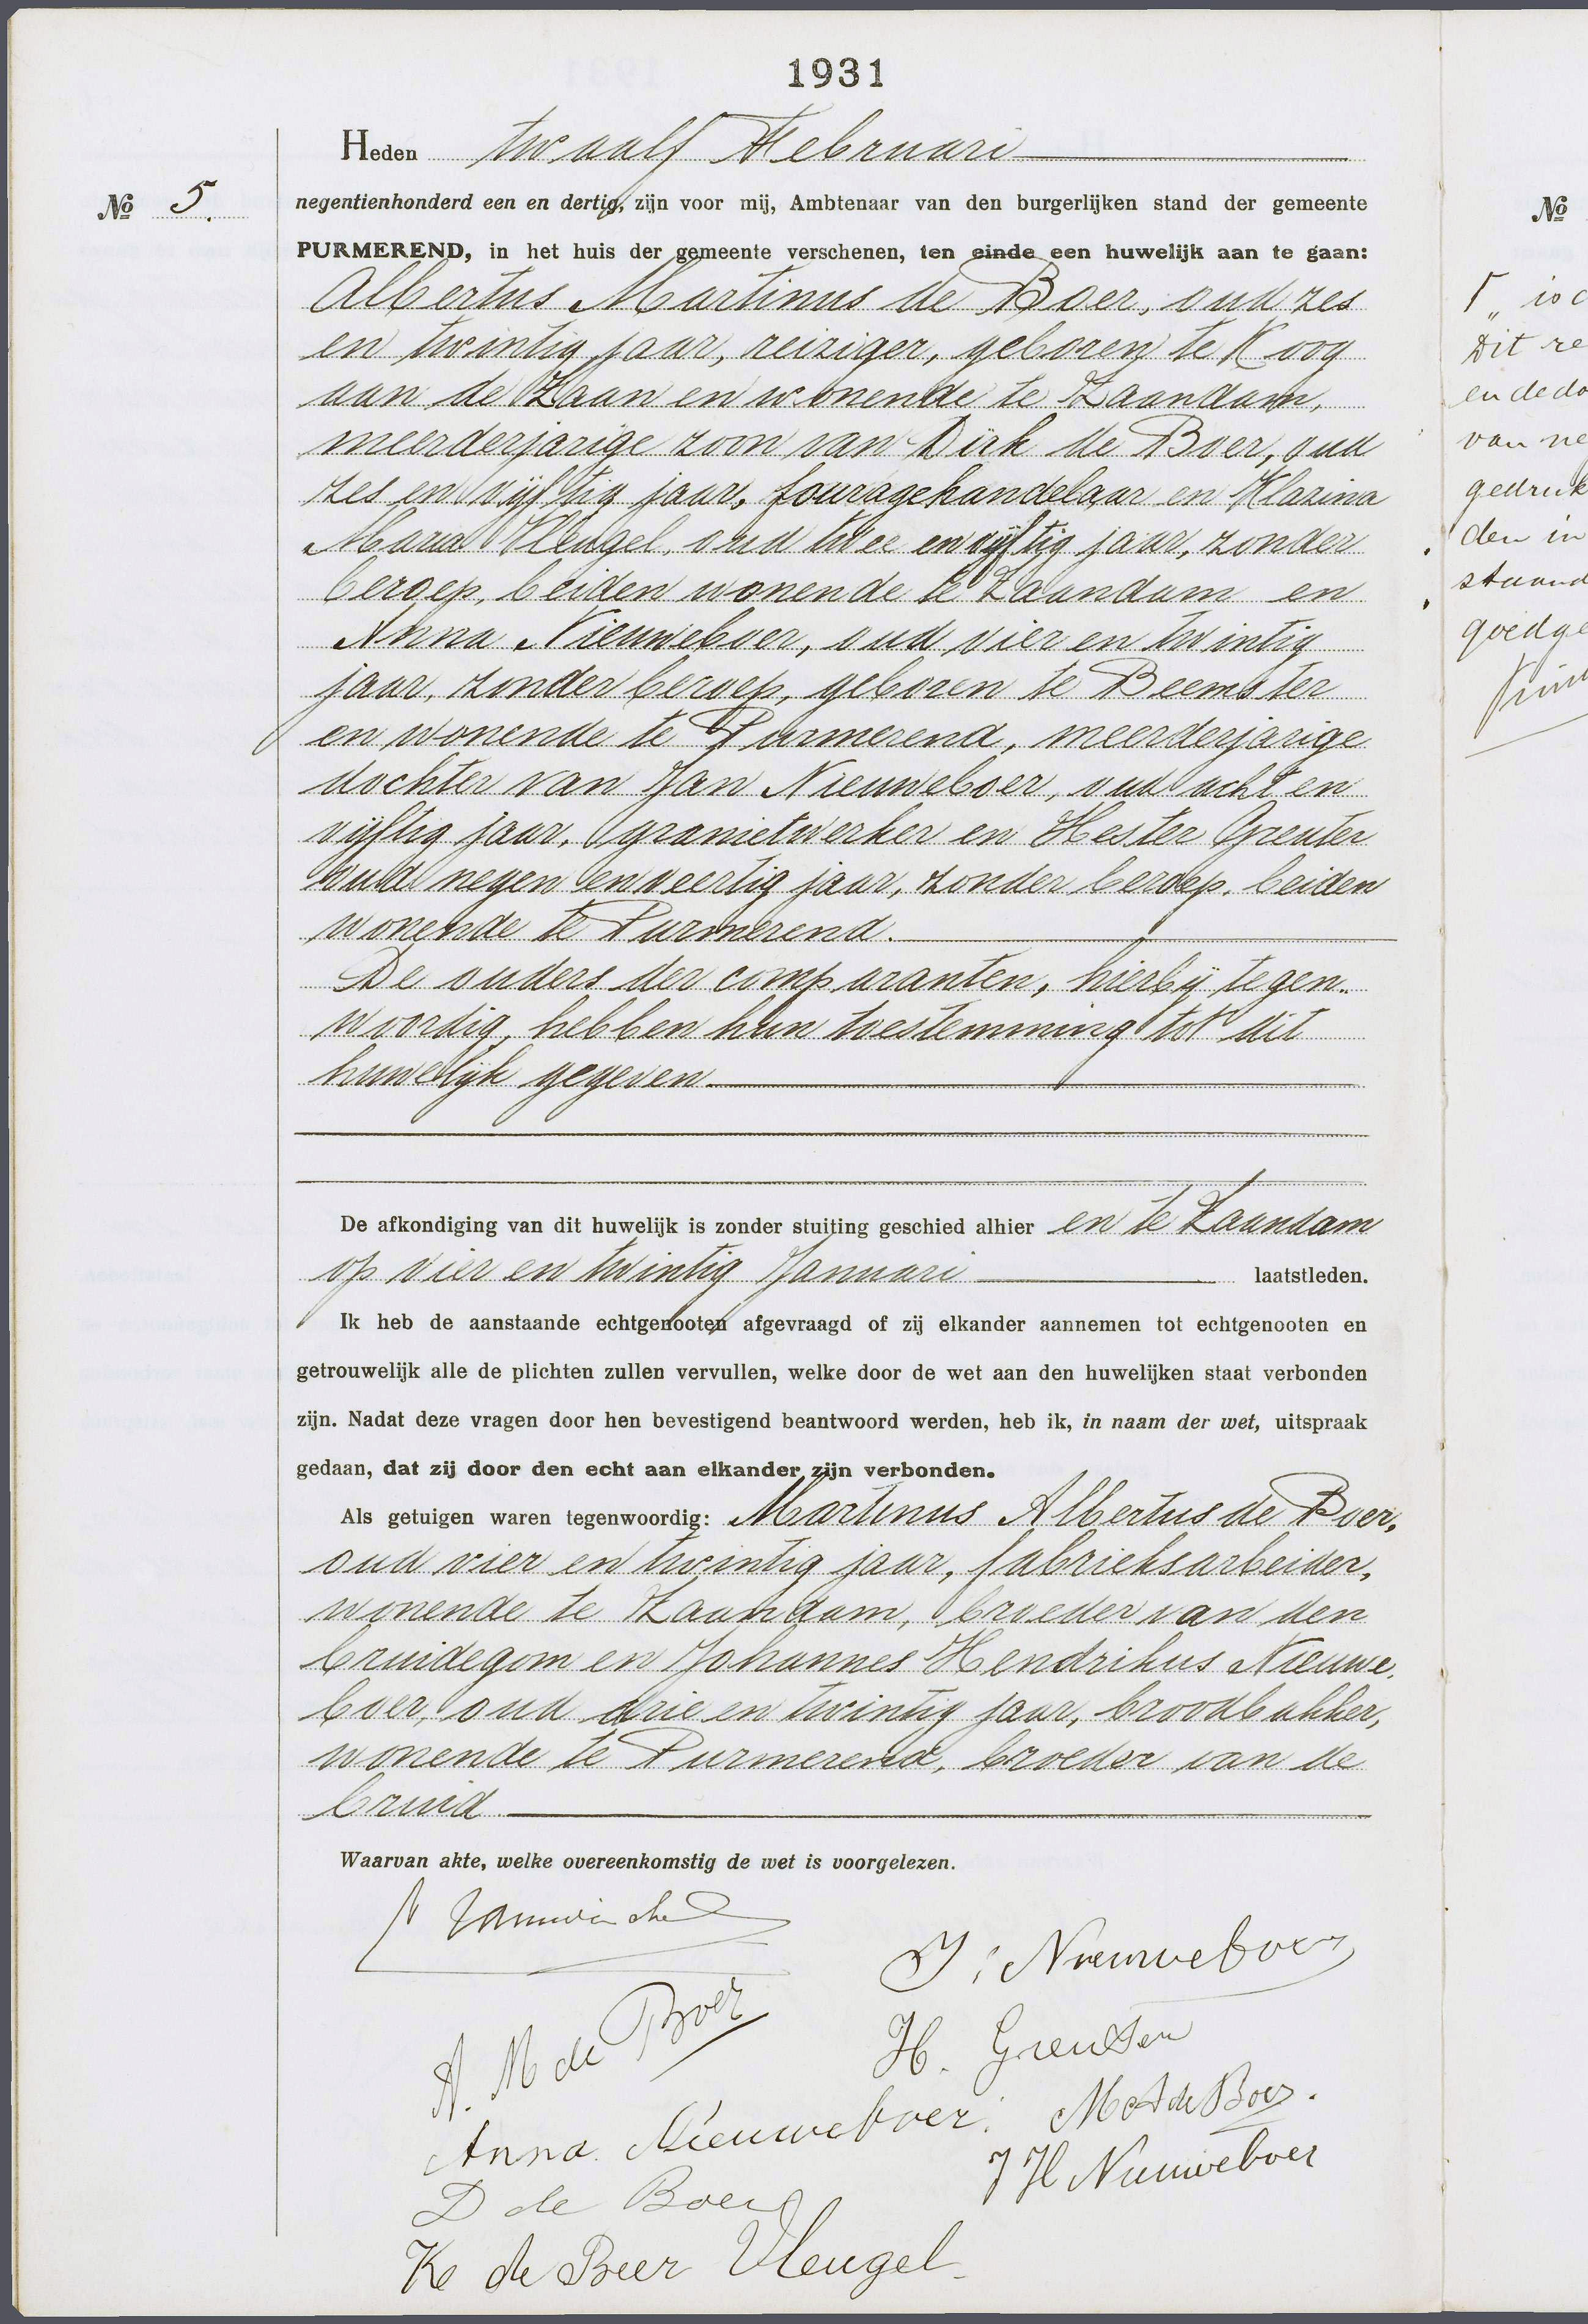 1931
Heden twaalf Februari
No 5.
negentienhonderd een en dertig, zijn voor mij, Ambtenaar van den burgerlijken stand der gemeente
PURMEREND, in het huis der gemeente verschenen, ten einde een huwelijk aan te gaan:
Albertus Martinus de Boer, oud zes
en twintig jaar, reiziger, geboren te Koog
aan de Zaan en wonende te Zaandam,
meerderjarige zoon van Dirk de Boer, oud
zes en vijftig jaar, fouragehandelaar en Klazina
Maria Vleugel, oud twee en vijftig jaar, zonder
beroep, beiden wonende te Zaandam en
Anna Nieuweboer, oud vier en twintig
jaar, zonder beroep, geboren te Beemster
en wonende te Purmerend, meerderjarige
dochter van Jan Nieuweboer, oud acht en
vijftig jaar, granietwerker en Hester Greuter
oud negen en veertig jaar, zonder beroep, beiden
wonende te Purmerend.
De ouders der comparanten, hierbij tegen-
woordig, hebben hun toestemming tot dit
huwelijk gegeven
De afkondiging van dit huwelijk is zonder stuiting geschied alhier en te Zaandam
op vier en twintig Januari laatstleden.
Ik heb de aanstaande echtgenooten afgevraagd of zij elkander aannemen tot echtgenooten en
getrouwelijk alle de plichten zullen vervullen, welke door de wet aan den huwelijken staat verbonden
zijn. Nadat deze vragen door hen bevestigend beantwoord werden, heb ik, in naam der wet, uitspraak
gedaan, dat zij door den echt aan elkander zijn verbonden.
Als getuigen waren tegenwoordig: Martinus Albertus de Boer,
oud vier en twintig jaar, fabrieksarbeider,
wonende te Zaandam, broeder van den
bruidegom en Johannes Hendrikus Nieuwe-
boer, oud drie en twintig jaar, broodbakker,
wonende te Purmerend, broeder van de
bruid
Waarvan akte, welke overeenkomstig de wet is voorgelezen.
J. Nieuweboer
A. M de Boer
H. Greuter
Anna Nieuweboer.
M A de Boer.
D de Boer
J H Nieuweboer
K de Boer Vleugel
No
dit re
en de do
van ne
gedruk
den in
staand
goedge